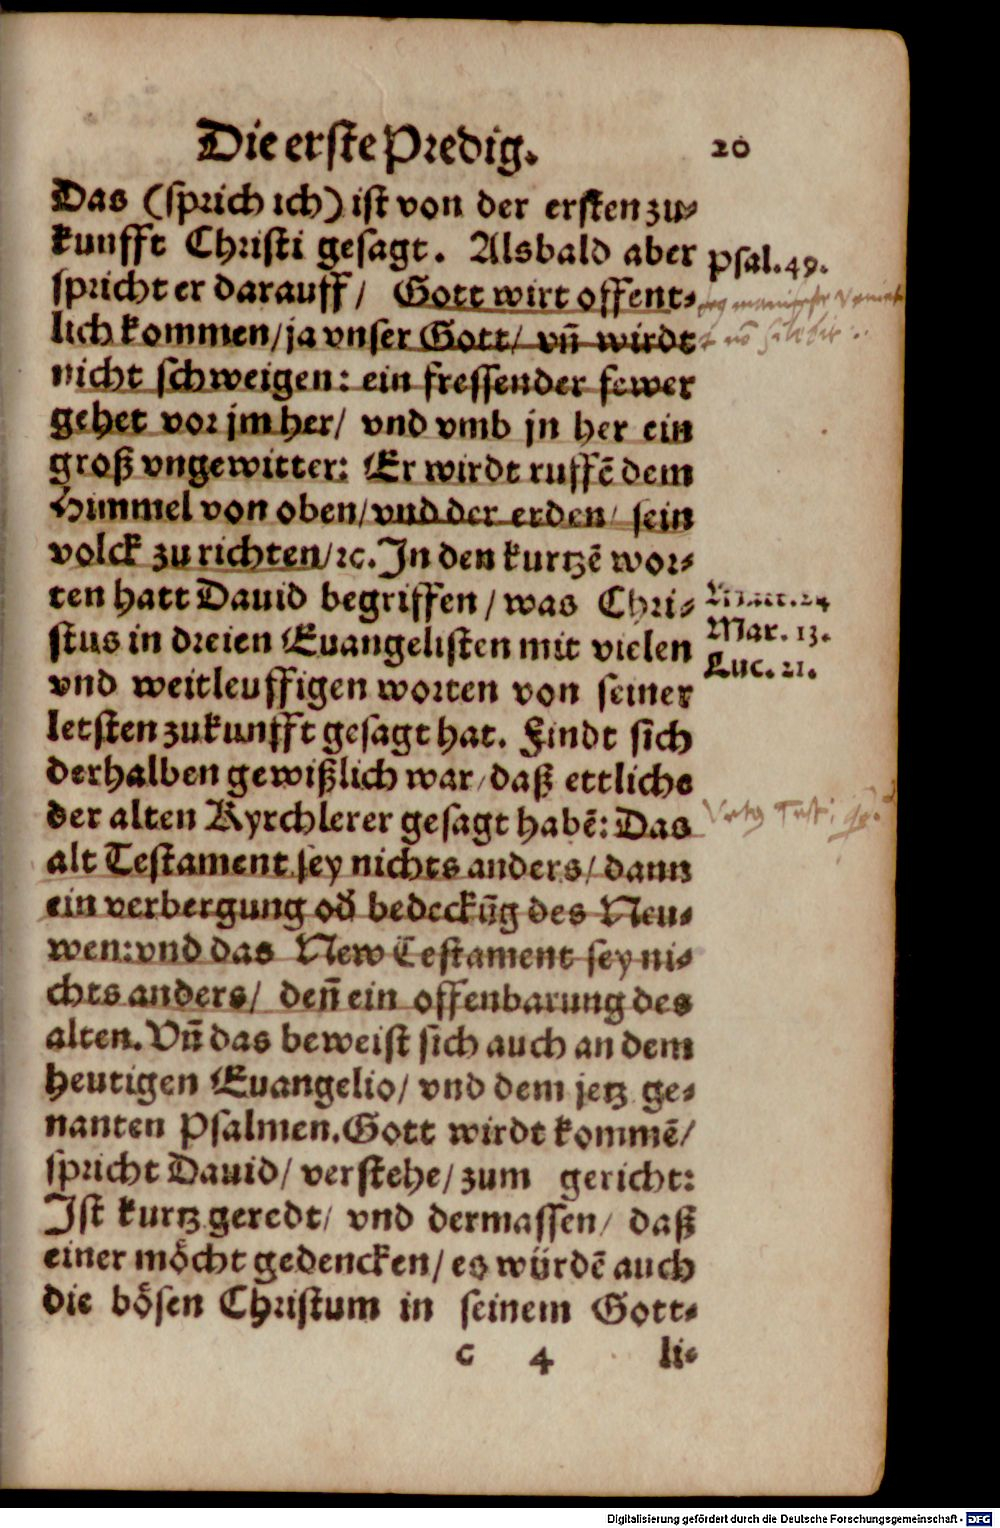 Die erste Predig. 20
Das (sprich ich) ist von der ersten zu⸗
kunfft Christi gesagt. Alsbald aber
Psal.49.
spricht er darauff/ Gott wirt offent⸗
lich kommen/ja vnser Gott/ vñ wirdt
nicht schweigen: ein fressender fewer
gehet vor jm her/ vnd vmb jn her ein
groß vngewitter: Er wirdt ruffē dem
Himmel von oben/vnd der erden/ sein
volck zu richten/ꝛc. In den kurtzē wor⸗
ten hatt Dauid begriffen/was Chri⸗
Matt.24
stus in dreien Euangelisten mit vielen
Mar. 13.
Luc. 21.
vnd weitleuffigen worten von seiner
letsten zukunfft gesagt hat. Findt sich
derhalben gewißlich war/daß ettliche
der alten Kyrchlerer gesagt habē: Das
alt Testament sey nichts anders/dann
ein verbergung od̕ bedeckūg des Neu⸗
wen:vnd das New Testament sey ni⸗
chts anders/ deñ ein offenbarung des
alten. Vñ das beweist sich auch an dem
heutigen Euangelio/ vnd dem jetz ge⸗
nanten Psalmen. Gott wirdt kommē/
spricht Dauid/ verstehe/zum gericht:
Ist kurtz geredt/ vnd dermassen/ daß
einer möcht gedencken/es würdē auch
die bösen Christum in seinem Gott⸗
C 4 li⸗
Digitalisierung gefördert durch die Deutsche Forschungsgemeinschaft - DFG